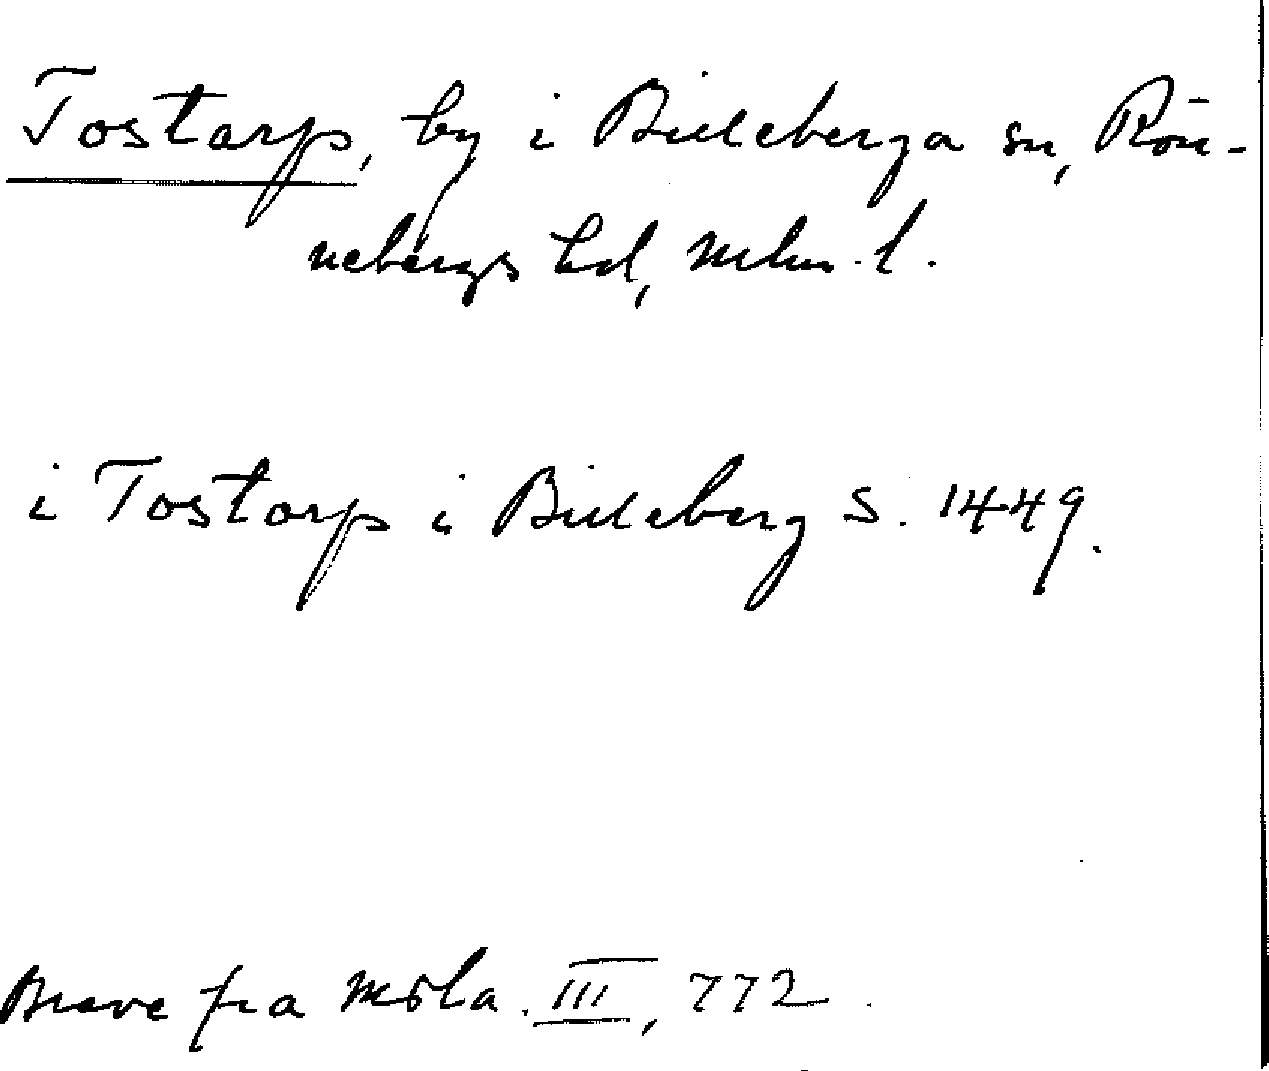 Tostarp, by i Billeberga sn, Rön-
nebergs hd, Mlm. l.
i Tostarp i Billeberg s. 1449.
Breve fra Msla. III, 772.